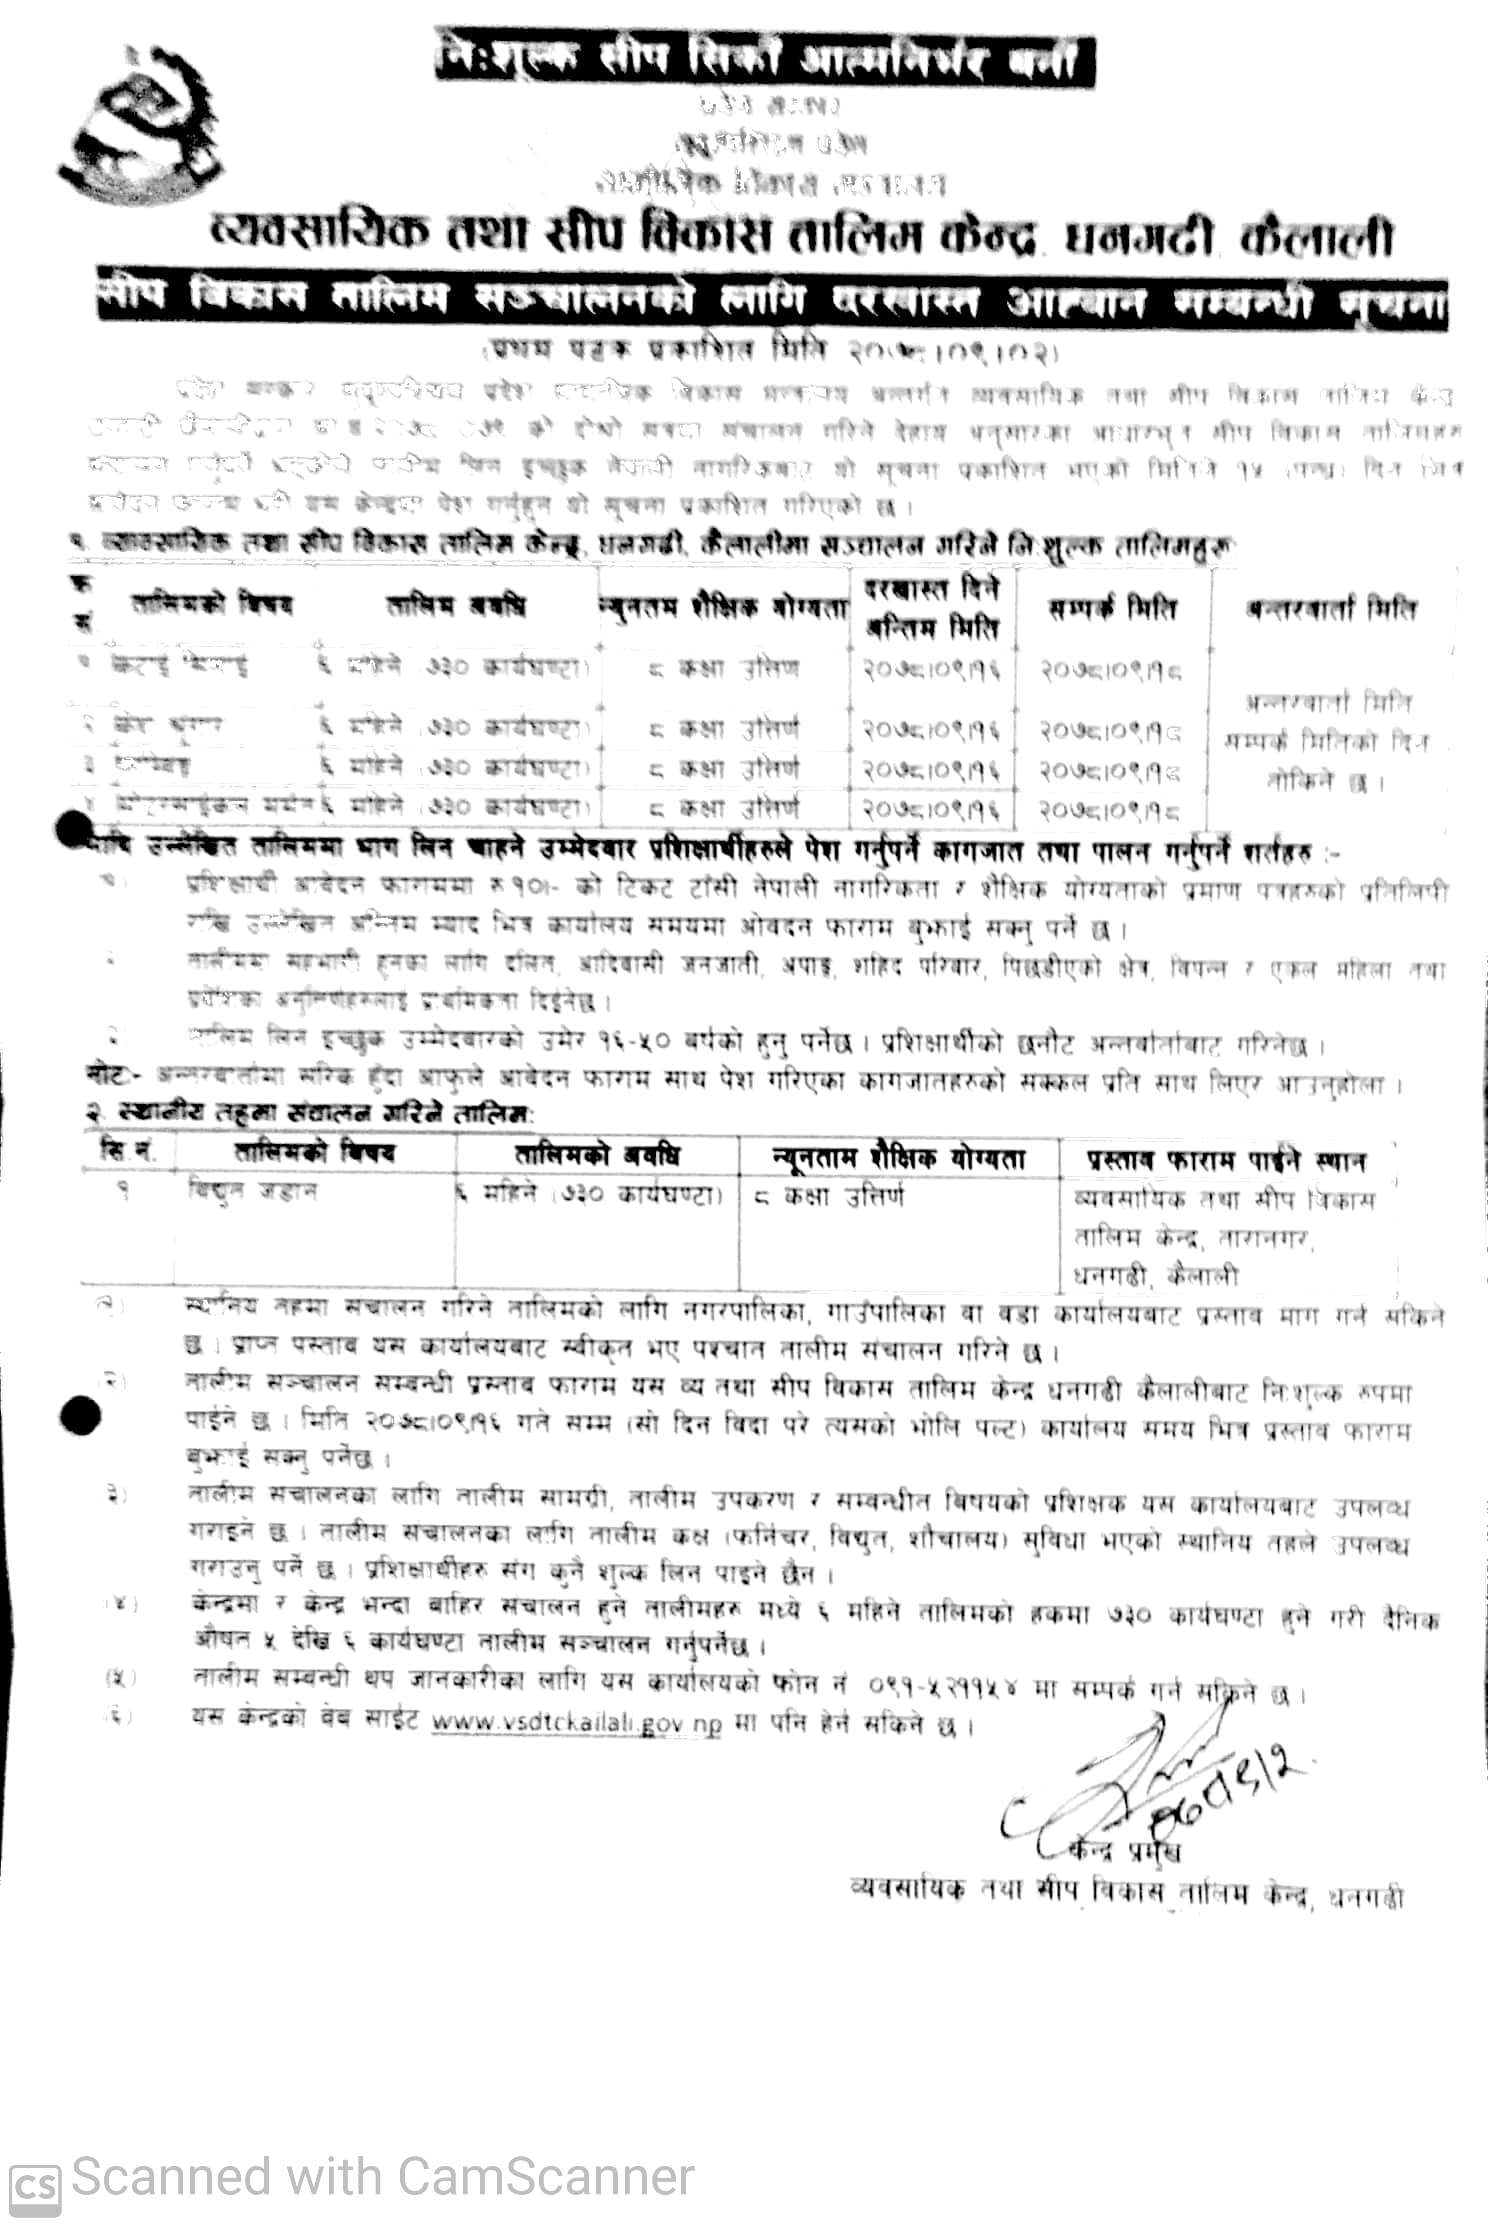 निःशुल्क सीप सिकौं आत्मनिर्भर बनौं
प्रदेश
व्यवसायिक तथा सीप विकास तालिम केन्द्र, धनगढी, कैलाली
सीप विकास तालिम सञ्चालनको लागि दरखास्त आह्वान सम्बन्धी सूचना
(प्रथम पटक प्रकाशित मिति २०७८।०९।०२)
प्रदेश विकास अन्तर्गत व्यवसायिक तथा सीप विकास तालिम केन्द्र
को दोश्रो संचालन गरिने देहाय अनुसारका आधारभूत सीप विकास तालिमहरु
लिन इच्छुक नेपाली नागरिकबाट यो सूचना प्रकाशित भएको मितिले १५ (पन्ध्र) दिन भित्र
यस केन्द्रमा पेश गर्नुहुन यो सूचना प्रकाशित गरिएको छ ।
१. व्यावसायिक तथा सीप विकास तालिम केन्द्र, धनगढी, कैलालीमा सञ्चालन गरिने निःशुल्क तालिमहरु
क्र सं तालिमको विषय तालिम अवधि न्यूनतम शैक्षिक योग्यता दरखास्त दिने अन्तिम मिति सम्पर्क मिति अन्तरवार्ता मिति
१ ६ महिने (७३० कार्यघण्टा) ८ कक्षा उत्तिर्ण २०७८।०९।१६ २०७८।०९।१८ अन्तरवार्ता मिति सम्पर्क मितिको दिन तोकिने छ ।
२ ६ महिने (७३० कार्यघण्टा) ८ कक्षा उत्तिर्ण २०७८।०९।१६ २०७८।०९।१८
३ ६ महिने (७३० कार्यघण्टा) ८ कक्षा उत्तिर्ण २०७८।०९।१६ २०७८।०९।१८
४ मोटरसाईकल मर्मत ६ महिने (७३० कार्यघण्टा) ८ कक्षा उत्तिर्ण २०७८।०९।१६ २०७८।०९।१८
माथि उल्लेखित तालिममा भाग लिन चाहने उम्मेदवार प्रशिक्षार्थीहरुले पेश गर्नुपर्ने कागजात तथा पालन गर्नुपर्ने शर्तहरु :-
१) प्रशिक्षार्थी आवेदन फारममा रु १०।- को टिकट टाँसी नेपाली नागरिकता र शैक्षिक योग्यताको प्रमाण पत्रहरुको प्रतिलिपी
राखि उल्लेखित अन्तिम म्याद भित्र कार्यालय समयमा ओवदन फाराम बुझाई सक्नु पर्ने छ ।
तालीममा सहभागी हुनका लागि दलित, आदिवासी जनजाती, अपाङ, शहिद परिवार, पिछडीएको क्षेत्र, विपन्न र एकल महिला तथा
प्रवेशिका अनुत्तिर्णहरुलाई प्राथमिकता दिईनेछ ।
तालिम लिन इच्छुक उम्मेदवारको उमेर १६-५० बर्षको हुनु पर्नेछ । प्रशिक्षार्थीको छनौट अन्तर्वार्ताबाट गरिनेछ ।
नोटः- अन्तरवार्तामा सरिक हुंदा आफुले आवेदन फाराम साथ पेश गरिएका कागजातहरुको सक्कल प्रति साथ लिएर आउनुहोला ।
२. स्थानीय तहमा संचालन गरिने तालिमः
सि.नं. तालिमको विषय तालिमको अवधि न्यूनताम शैक्षिक योग्यता प्रस्ताव फाराम पाईने स्थान
१ विद्युत जडान ६ महिने (७३० कार्यघण्टा) ८ कक्षा उत्तिर्ण व्यवसायिक तथा सीप विकास
तालिम केन्द्र, तारानगर,
धनगढी, कैलाली
१) स्थानिय तहमा संचालन गरिने तालिमको लागि नगरपालिका, गाउँपालिका वा वडा कार्यालयबाट प्रस्ताव माग गर्न सकिने
छ । प्राप्त पस्ताव यस कार्यालयबाट स्वीकृत भए पश्चात तालीम संचालन गरिने छ ।
(२) तालीम सञ्चालन सम्बन्धी प्रस्ताव फाराम यस व्य तथा सीप विकास तालिम केन्द्र धनगढी कैलालीबाट निःशुल्क रुपमा
पाईने छ । मिति २०७८।०९।१६ गते सम्म (सो दिन विदा परे त्यसको भोलि पल्ट) कार्यालय समय भित्र प्रस्ताव फाराम
बुझाई सक्नु पर्नेछ ।
३) तालीम संचालनका लागि तालीम सामग्री, तालीम उपकरण र सम्बन्धीत विषयको प्रशिक्षक यस कार्यालयबाट उपलब्ध
गराइने छ । तालीम संचालनका लागि तालीम कक्ष (फर्निचर, विद्युत, शौचालय) सुविधा भएको स्थानिय तहले उपलब्ध
गराउनु पर्ने छ । प्रशिक्षार्थीहरु संग कुनै शुल्क लिन पाइने छैन ।
(४) केन्द्रमा र केन्द्र भन्दा बाहिर संचालन हुने तालीमहरु मध्ये ६ महिने तालिमको हकमा ७३० कार्यघण्टा हुने गरी दैनिक
औषत ५ देखि ६ कार्यघण्टा तालीम सञ्चालन गर्नुपर्नेछ ।
(५) तालीम सम्बन्धी थप जानकारीका लागि यस कार्यालयको फोन नं ०९१-५२११५४ मा सम्पर्क गर्न सकिने छ ।
(६) यस केन्द्रको वेब साईट www.vsdtckailali.gov.np मा पनि हेर्न सकिने छ ।
केन्द्र प्रमुख
व्यवसायिक तथा सीप विकास तालिम केन्द्र, धनगढी
CS Scanned with CamScanner